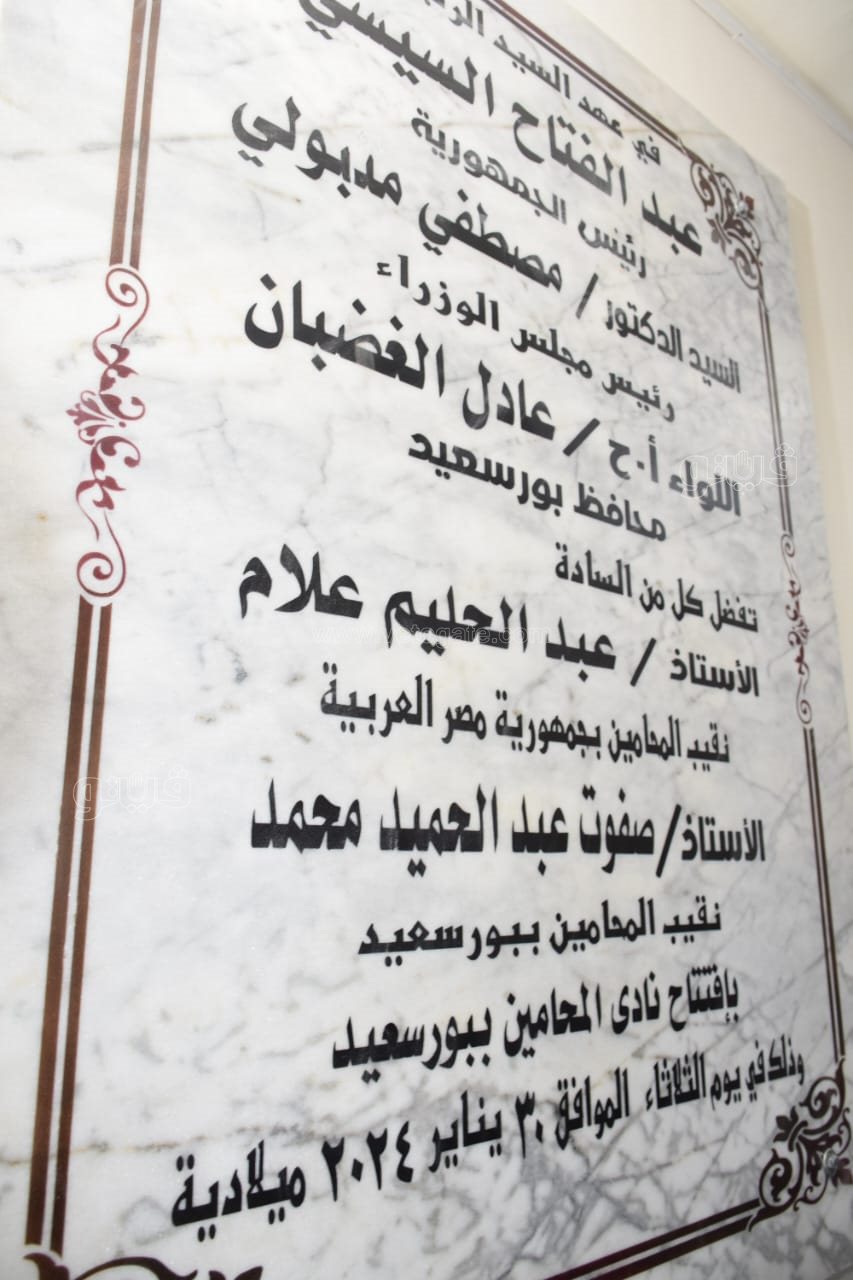 في عهد السيد
عبد الفتاح السيسي
رئيس الجمهورية
السيد الدكتور / مصطفي مدبولي
رئيس مجلس الوزراء
اللواء أ.ح / عادل الغضبان
محافظ بورسعيد
تفضل كل من السادة
الأستاذ / عبد الحليم علام
نقيب المحامين بجمهورية مصر العربية
الأستاذ/صفوت عبد الحميد محمد
نقيب المحامين ببورسعيد
بإفتتاح نادى المحامين ببورسعيد
وذلك في يوم الثلاثاء الموافق ٣٠ يناير ٢٠٢٤ ميلادية
ڤيتو
www.vetogate.com
ڤيتو